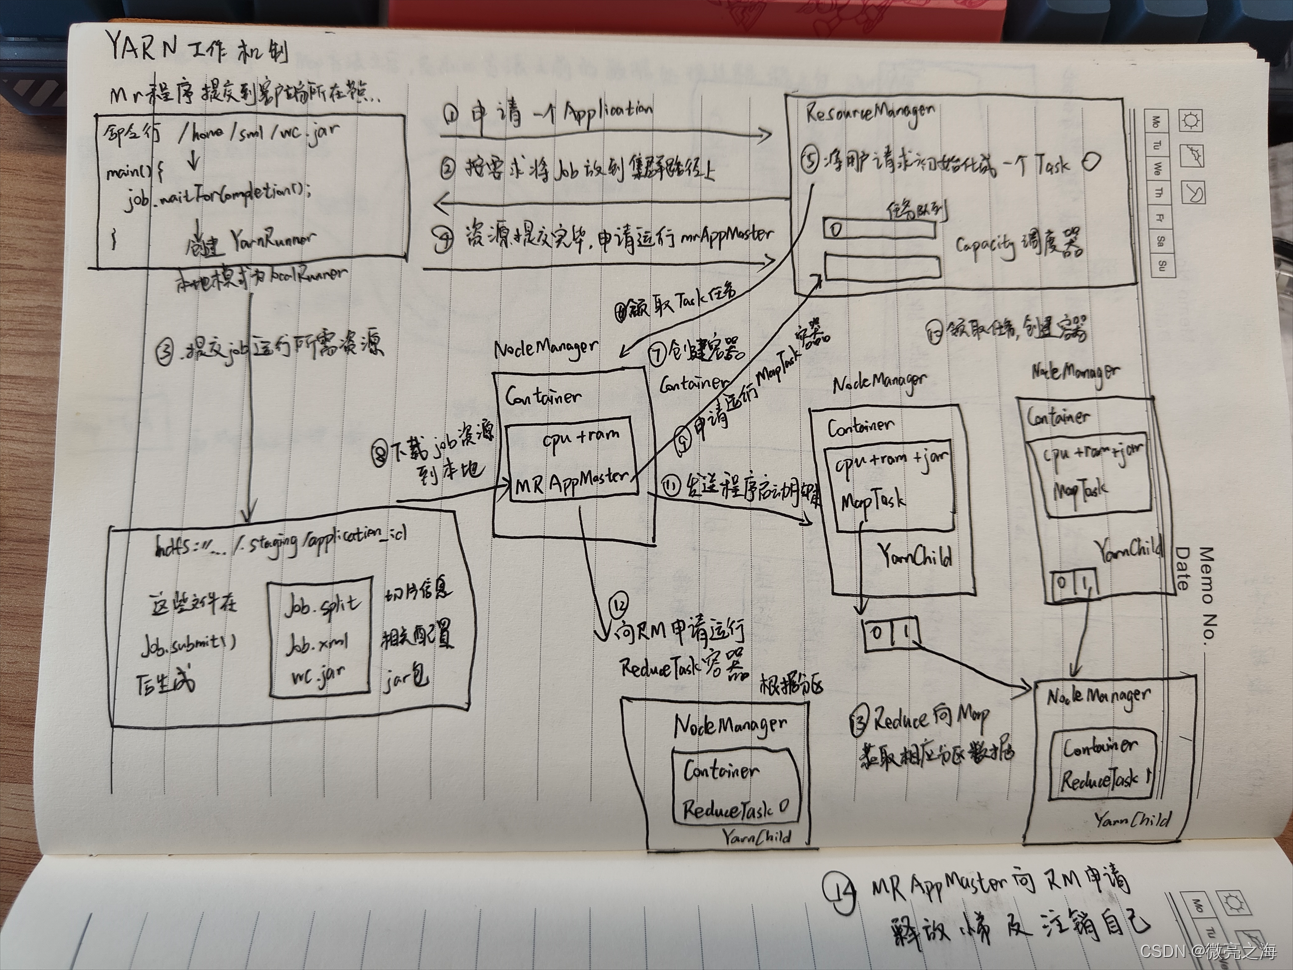 YARN 工作机制
Mr程序提交到客户端所在节点...
命令行 /home/sml/wc.jar
main() {
job.waitForCompletion();
}
创建 YarnRunner
本地模式为localRunner
① 申请一个Application
② 按要求将Job放到集群路径上
④ 资源提交完毕,申请运行mrAppMaster
ResourceManager
⑤ 将用户请求初始化成一个Task
任务队列
Capacity调度器
③ 提交job运行所需资源
⑥领取Task任务
⑦创建容器
Container
⑨申请运行MapTask容器
⑩领取任务,创建容器
⑧下载job资源
到本地
NodeManager
Container
cpu+ram
MR AppMaster
⑪发送程序启动
NodeManager
Container
cpu+ram+jar
MapTask
YarnChild
0 1
NodeManager
Container
cpu+ram+jar
MapTask
YarnChild
0 1
hdfs://.../.staging/application_id
这些文件在
Job.submit()
后生成
Job.split
Job.xml
wc.jar
切片信息
相关配置
jar包
⑫
向RM申请运行
ReduceTask容器
根据分区
NodeManager
Container
ReduceTask 0
YarnChild
⑬Reduce向Map
获取相应分区数据
NodeManager
Container
ReduceTask 1
YarnChild
⑭ MR AppMaster向RM申请
释放 及注销自己
Memo No.
Date
Mo
Tu
We
Th
Fr
Sa
Su
Mo
Tu
CSDN @微亮之海